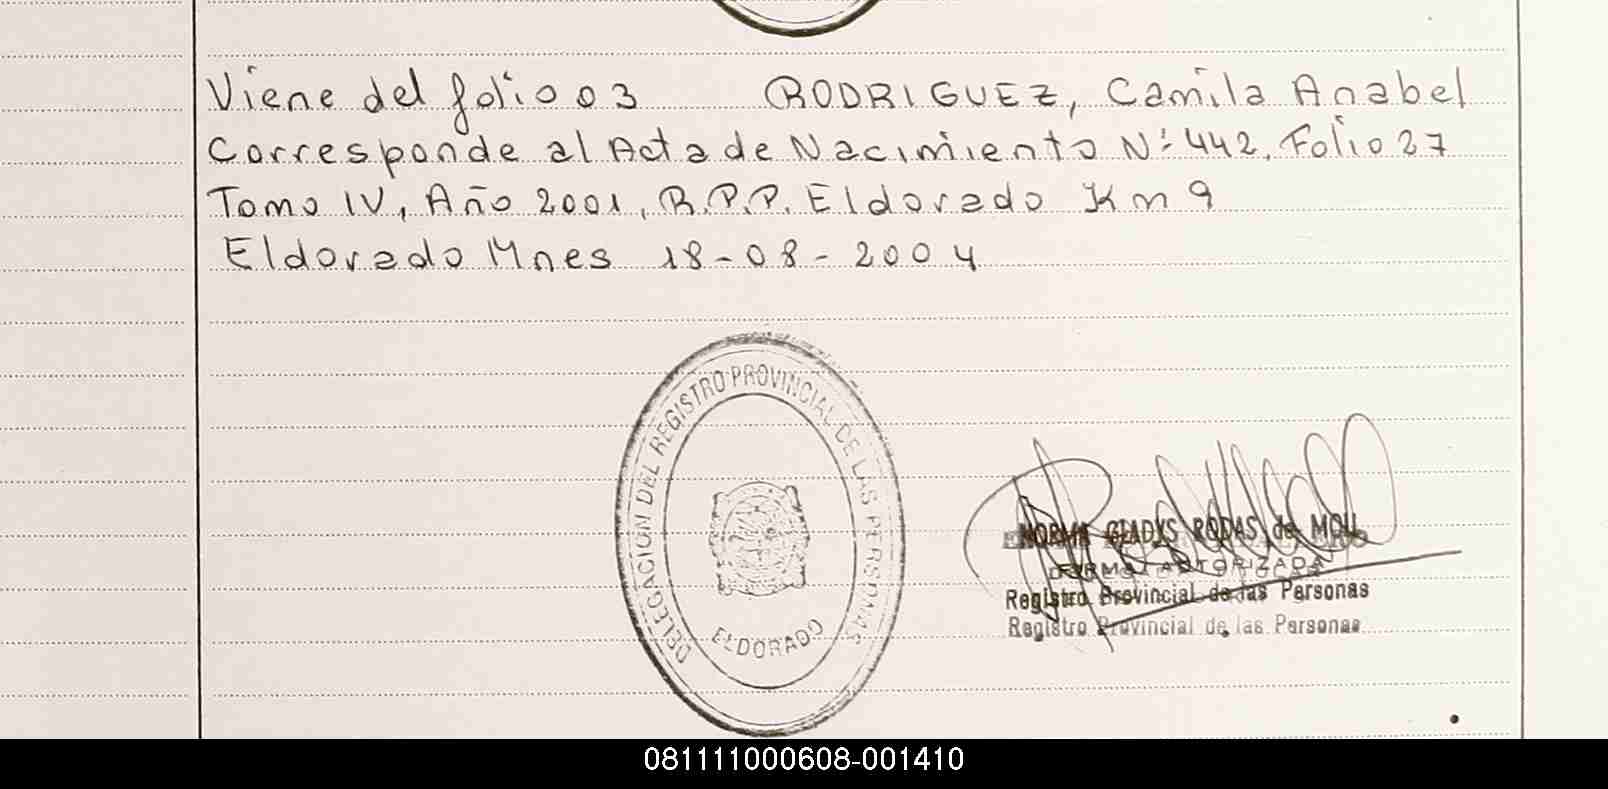 Viene del folio 03 RODRIGUEZ, Camila Anabel
Corresponde al Acta de Nacimiento Nº 442, Folio 27
Tomo IV, Año 2001, R.P.P. Eldorado Km 9
Eldorado Mnes 18-08-2004
DELEGACION DEL REGISTRO PROVINCIAL DE LAS PERSONAS
ELDORADO
NORMA GLADYS RODAS de MOLL
FIRMA AUTORIZADA
Registro Provincial de las Personas
Registro Provincial de las Personas
081111000608-001410